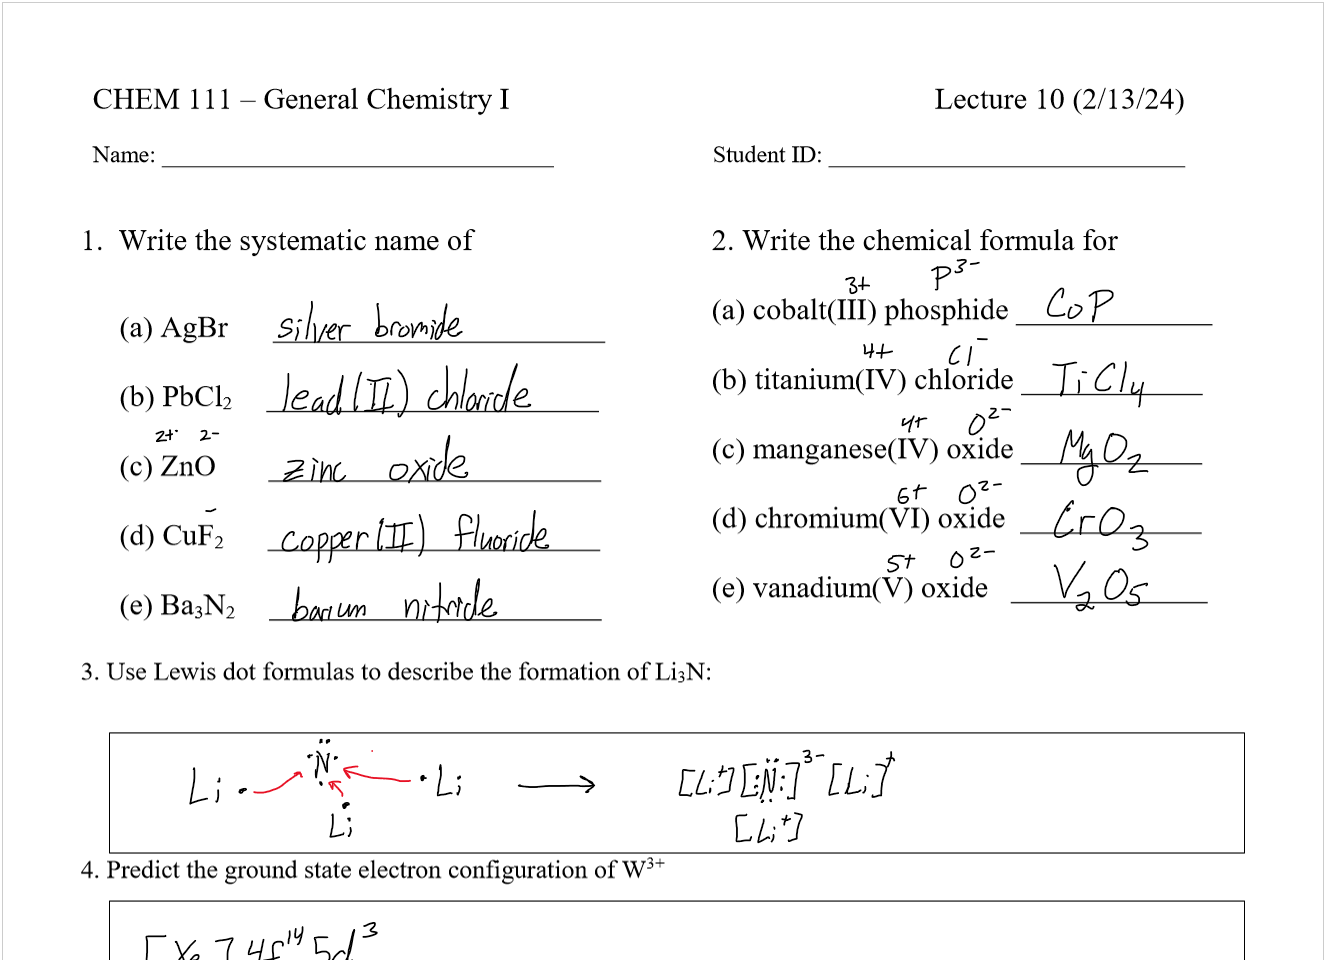 CHEM 111 – General Chemistry I Lecture 10 (2/13/24)
Name: Student ID:
1. Write the systematic name of
(a) AgBr silver bromide
(b) PbCl₂ lead(II) chloride
2+ 2-
(c) ZnO zinc oxide
-
(d) CuF₂ copper(II) fluoride
(e) Ba₃N₂ barium nitride
2. Write the chemical formula for
3+ P³⁻
(a) cobalt(III) phosphide CoP
4+ Cl⁻
(b) titanium(IV) chloride TiCl₄
4+ O²⁻
(c) manganese(IV) oxide MgO₂
6+ O²⁻
(d) chromium(VI) oxide CrO₃
5+ O²⁻
(e) vanadium(V) oxide V₂O₅
3. Use Lewis dot formulas to describe the formation of Li₃N:
Li· N ·Li → [Li⁺][:N:]³⁻[Li]⁺
Li [Li⁺]
4. Predict the ground state electron configuration of W³⁺
[Xe] 4f¹⁴ 5d³